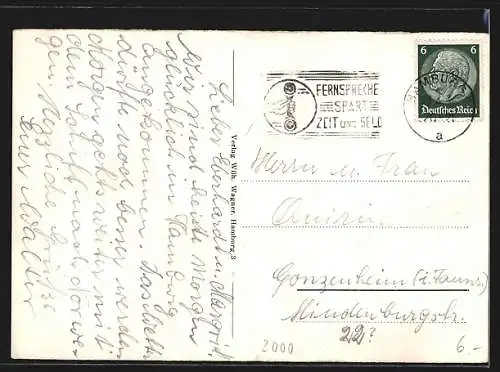 Lieber Eberhardt u. Margrit!
Wir sind heute Morgen
glücklich in Hamburg
angekommen. Das Wetter
dürfte noch besser werden.
Morgen gehts weiter mit
dem Schiff nach Norwe-
gen. Herzliche Grüße
Euer Walter
Verlag Wilh. Wagner, Hamburg 3
FERNSPRECHE
SPART
ZEIT UND GELD
HAMBURG
a
6 6
Deutsches Reich
Herrn u. Frau
Quirin
Gonzenheim (i. Tauns.)
Hindenburgstr.
22?
2000
6.-